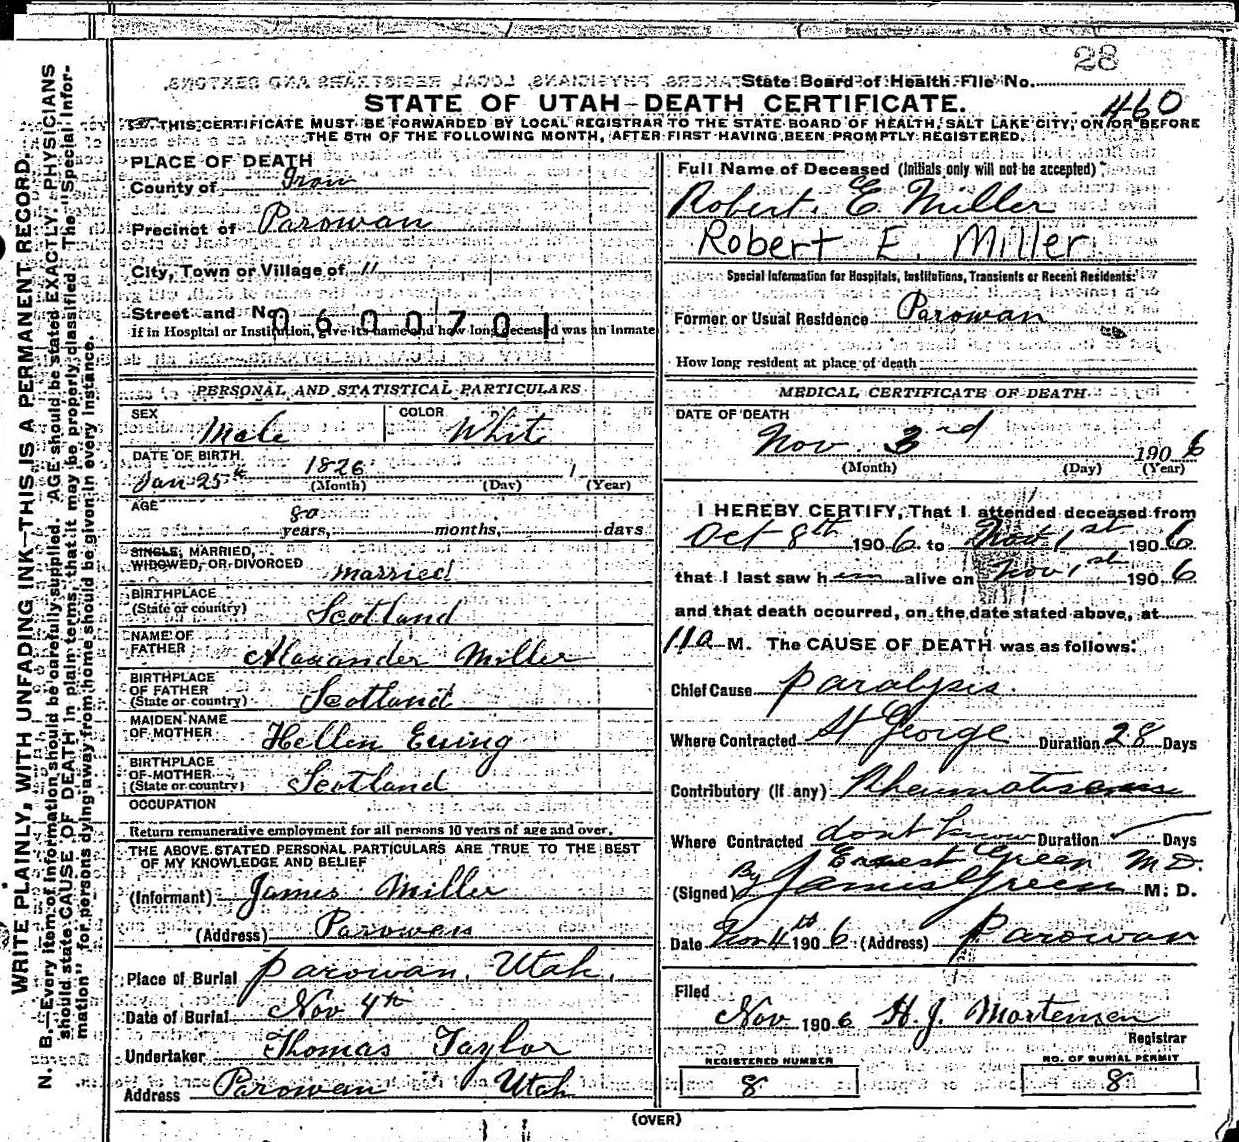 28
State Board of Health File No.
460
STATE OF UTAH—DEATH CERTIFICATE.
THIS CERTIFICATE MUST BE FORWARDED BY LOCAL REGISTRAR TO THE STATE BOARD OF HEALTH, SALT LAKE CITY, ON OR BEFORE
THE 5TH OF THE FOLLOWING MONTH, AFTER FIRST HAVING BEEN PROMPTLY REGISTERED.
WRITE PLAINLY, WITH UNFADING INK—THIS IS A PERMANENT RECORD.
N. B.—Every item of information should be carefully supplied. AGE should be stated EXACTLY. PHYSICIANS
should state CAUSE OF DEATH in plain terms, that it may be properly classified. The "Special Infor-
mation" for persons dying away from home should be given in every instance.
PLACE OF DEATH
County of Iron
Precinct of Parowan
City, Town or Village of "
Street and No.
0600701
If in Hospital or Institution, give its name and how long deceased was an inmate
PERSONAL AND STATISTICAL PARTICULARS
SEX Male COLOR White
DATE OF BIRTH
Jan 25th 1826 1
(Month) (Day) (Year)
AGE
80 years, months, days
SINGLE, MARRIED,
WIDOWED, OR DIVORCED married
BIRTHPLACE
(State or country) Scotland
NAME OF
FATHER Alexander Miller
BIRTHPLACE
OF FATHER
(State or country) Scotland
MAIDEN NAME
OF MOTHER Hellen Ewing
BIRTHPLACE
OF MOTHER
(State or country) Scotland
OCCUPATION
Return remunerative employment for all persons 10 years of age and over.
THE ABOVE STATED PERSONAL PARTICULARS ARE TRUE TO THE BEST
OF MY KNOWLEDGE AND BELIEF
(Informant) James Miller
(Address) Parowan
Place of Burial Parowan, Utah.
Date of Burial Nov 4th
Undertaker Thomas Taylor
Address Parowan Utah
Full Name of Deceased (Initials only will not be accepted)
Robert. E Miller
Robert E. Miller
Special Information for Hospitals, Institutions, Transients or Recent Residents:
Former or Usual Residence Parowan
How long resident at place of death
MEDICAL CERTIFICATE OF DEATH
DATE OF DEATH
Nov. 3rd 1906
(Month) (Day) (Year)
I HEREBY CERTIFY, That I attended deceased from
Oct 8th 1906 to Nov 1st 1906
that I last saw him alive on Nov 1st 1906
and that death occurred, on the date stated above, at
11 a M. The CAUSE OF DEATH was as follows:
Chief Cause paralysis.
Where Contracted St George Duration 28 Days
Contributory (if any) Rheumatism
Where Contracted dont know Duration Days
Ernest Green M D.
(Signed) By James Green M. D.
Date Nov 4th 1906 (Address) Parowan
Filed
Nov 1906 H. J. Mortensen
Registrar
REGISTERED NUMBER
8
NO. OF BURIAL PERMIT
8
(OVER)